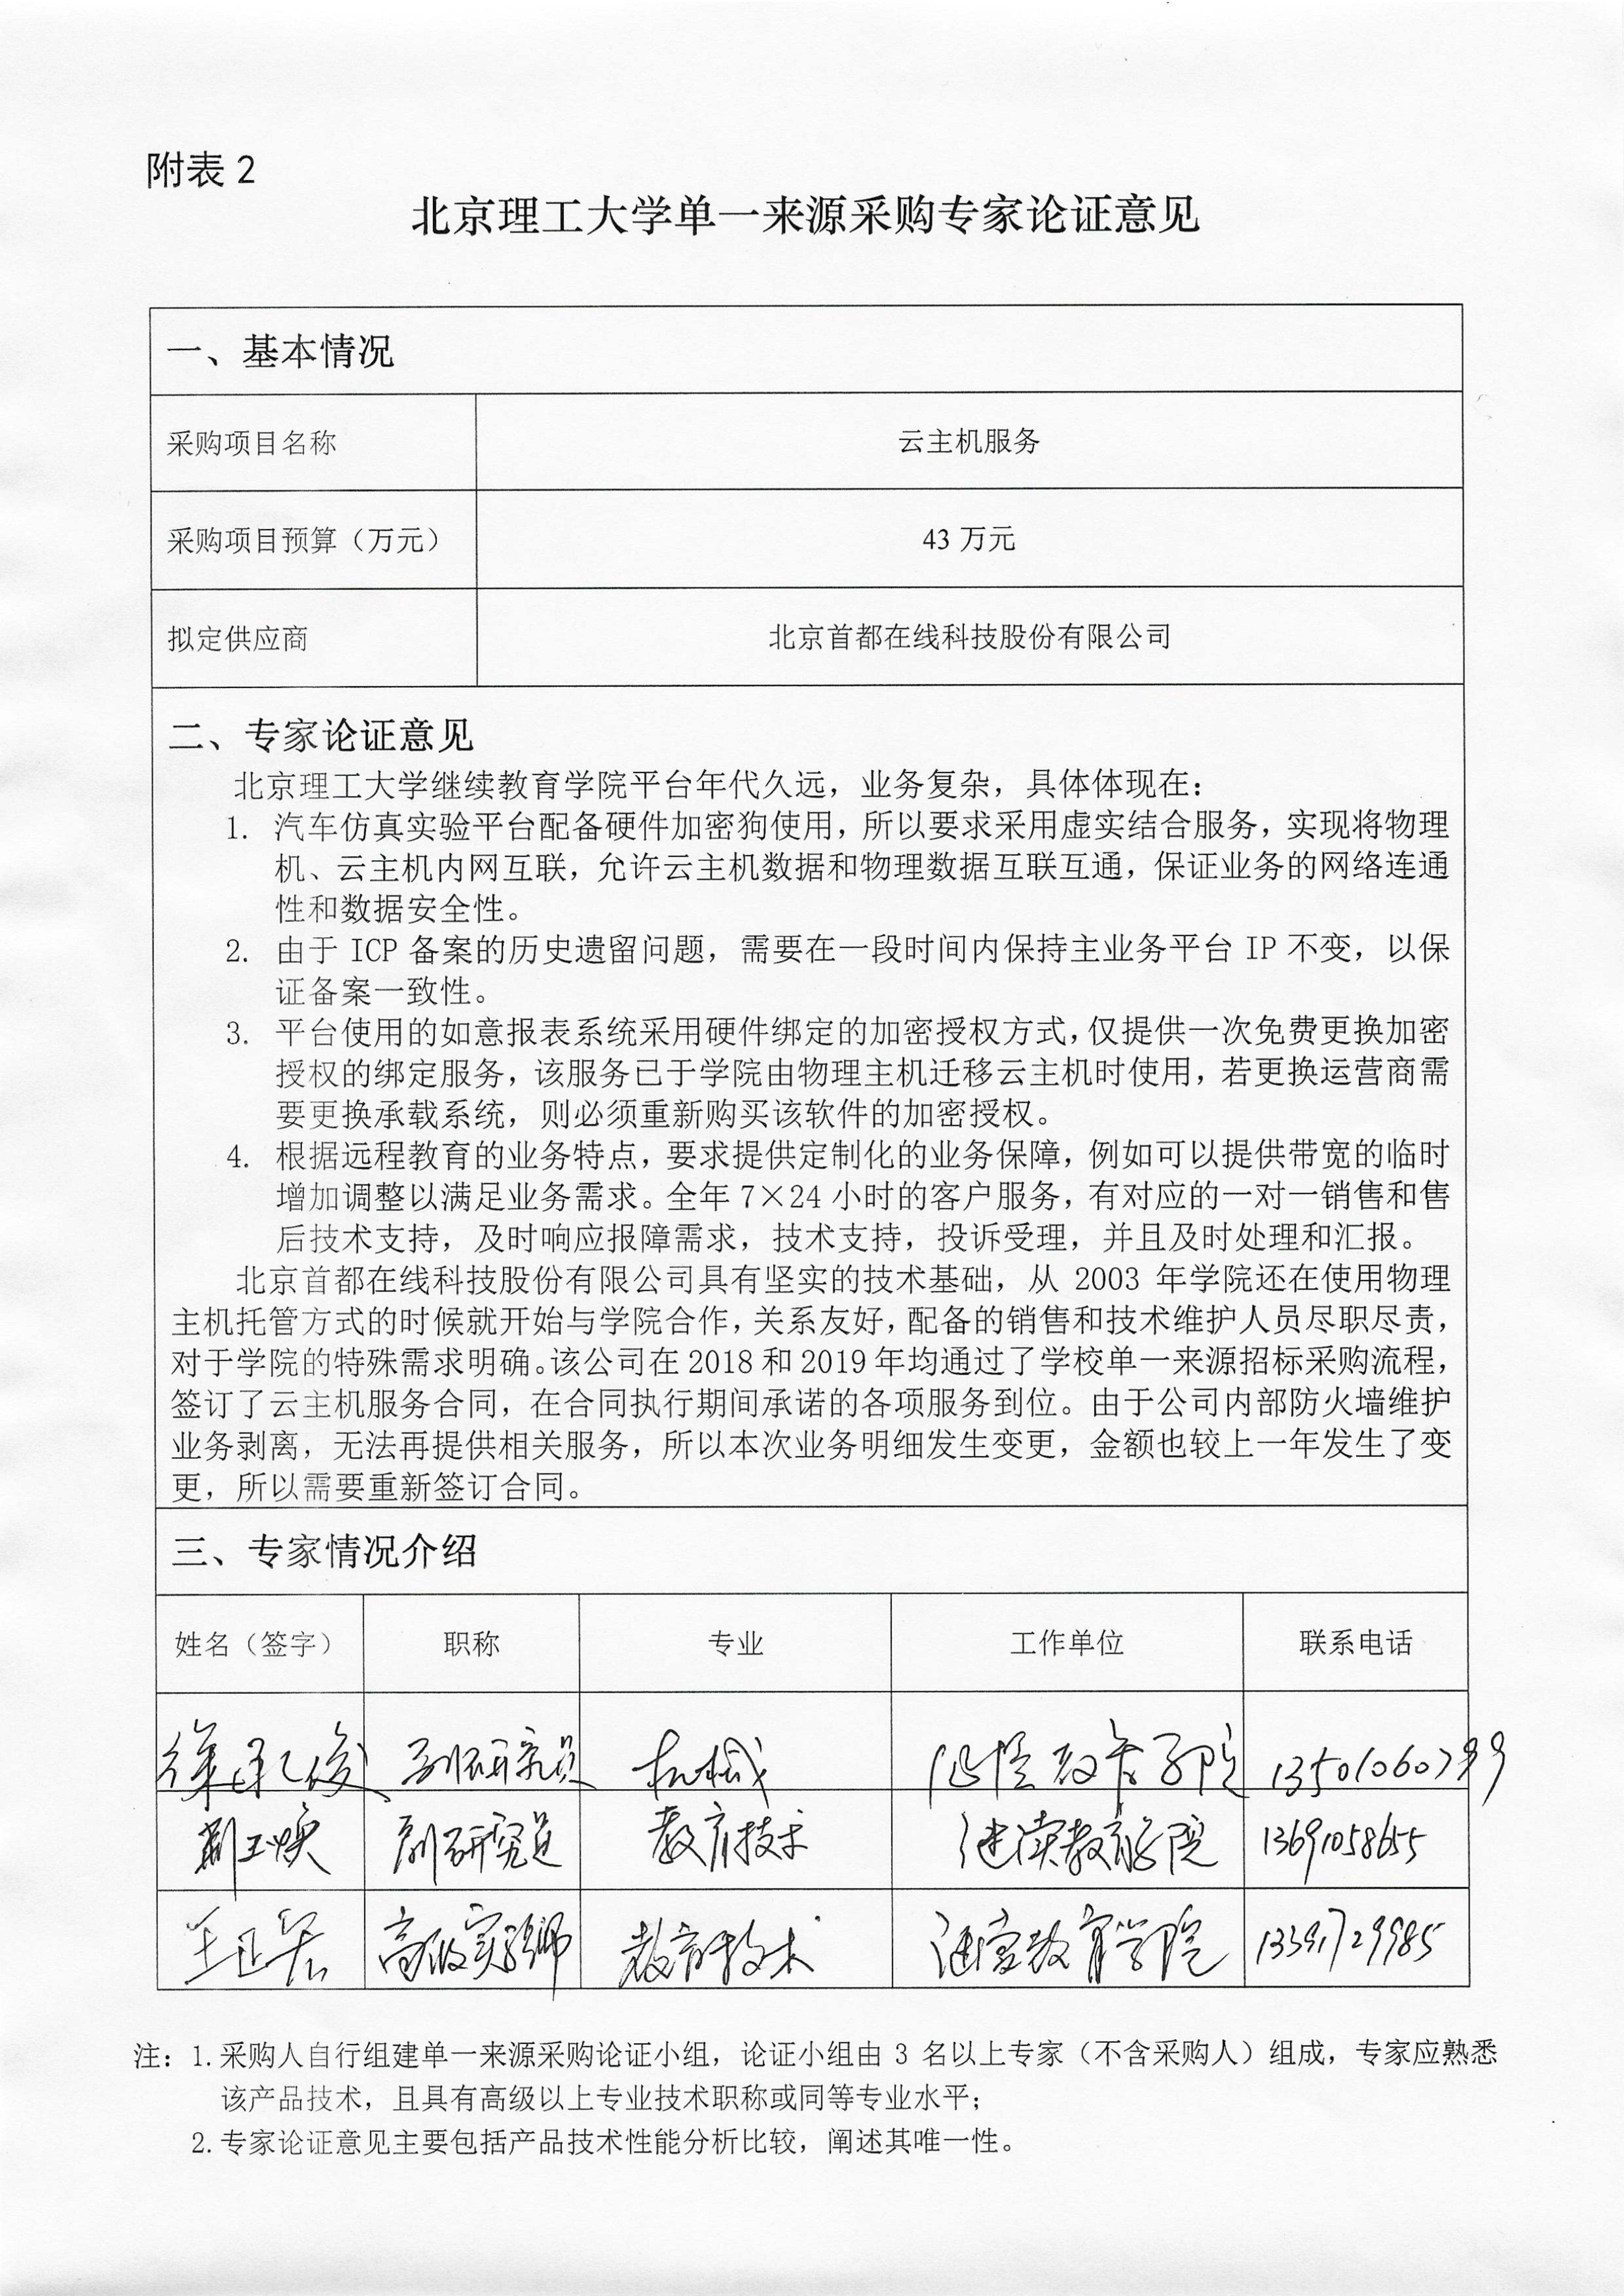 附表 2
北京理工大学单一来源采购专家论证意见
一、基本情况
采购项目名称 云主机服务
采购项目预算（万元） 43 万元
拟定供应商 北京首都在线科技股份有限公司
二、专家论证意见
北京理工大学继续教育学院平台年代久远，业务复杂，具体体现在：
1. 汽车仿真实验平台配备硬件加密狗使用，所以要求采用虚实结合服务，实现将物理
机、云主机内网互联，允许云主机数据和物理数据互联互通，保证业务的网络连通
性和数据安全性。
2. 由于 ICP 备案的历史遗留问题，需要在一段时间内保持主业务平台 IP 不变，以保
证备案一致性。
3. 平台使用的如意报表系统采用硬件绑定的加密授权方式，仅提供一次免费更换加密
授权的绑定服务，该服务已于学院由物理主机迁移云主机时使用，若更换运营商需
要更换承载系统，则必须重新购买该软件的加密授权。
4. 根据远程教育的业务特点，要求提供定制化的业务保障，例如可以提供带宽的临时
增加调整以满足业务需求。全年 7×24 小时的客户服务，有对应的一对一销售和售
后技术支持，及时响应报障需求，技术支持，投诉受理，并且及时处理和汇报。
北京首都在线科技股份有限公司具有坚实的技术基础，从 2003 年学院还在使用物理
主机托管方式的时候就开始与学院合作，关系友好，配备的销售和技术维护人员尽职尽责，
对于学院的特殊需求明确。该公司在 2018 和 2019 年均通过了学校单一来源招标采购流程，
签订了云主机服务合同，在合同执行期间承诺的各项服务到位。由于公司内部防火墙维护
业务剥离，无法再提供相关服务，所以本次业务明细发生变更，金额也较上一年发生了变
更，所以需要重新签订合同。
三、专家情况介绍
姓名（签字） 职称 专业 工作单位 联系电话
副研究员 机械 13501060799
副研究员 教育技术 继续教育学院 13691058655
高级实验师 教育技术 教育学院
注：1.采购人自行组建单一来源采购论证小组，论证小组由 3 名以上专家（不含采购人）组成，专家应熟悉
该产品技术，且具有高级以上专业技术职称或同等专业水平；
2.专家论证意见主要包括产品技术性能分析比较，阐述其唯一性。